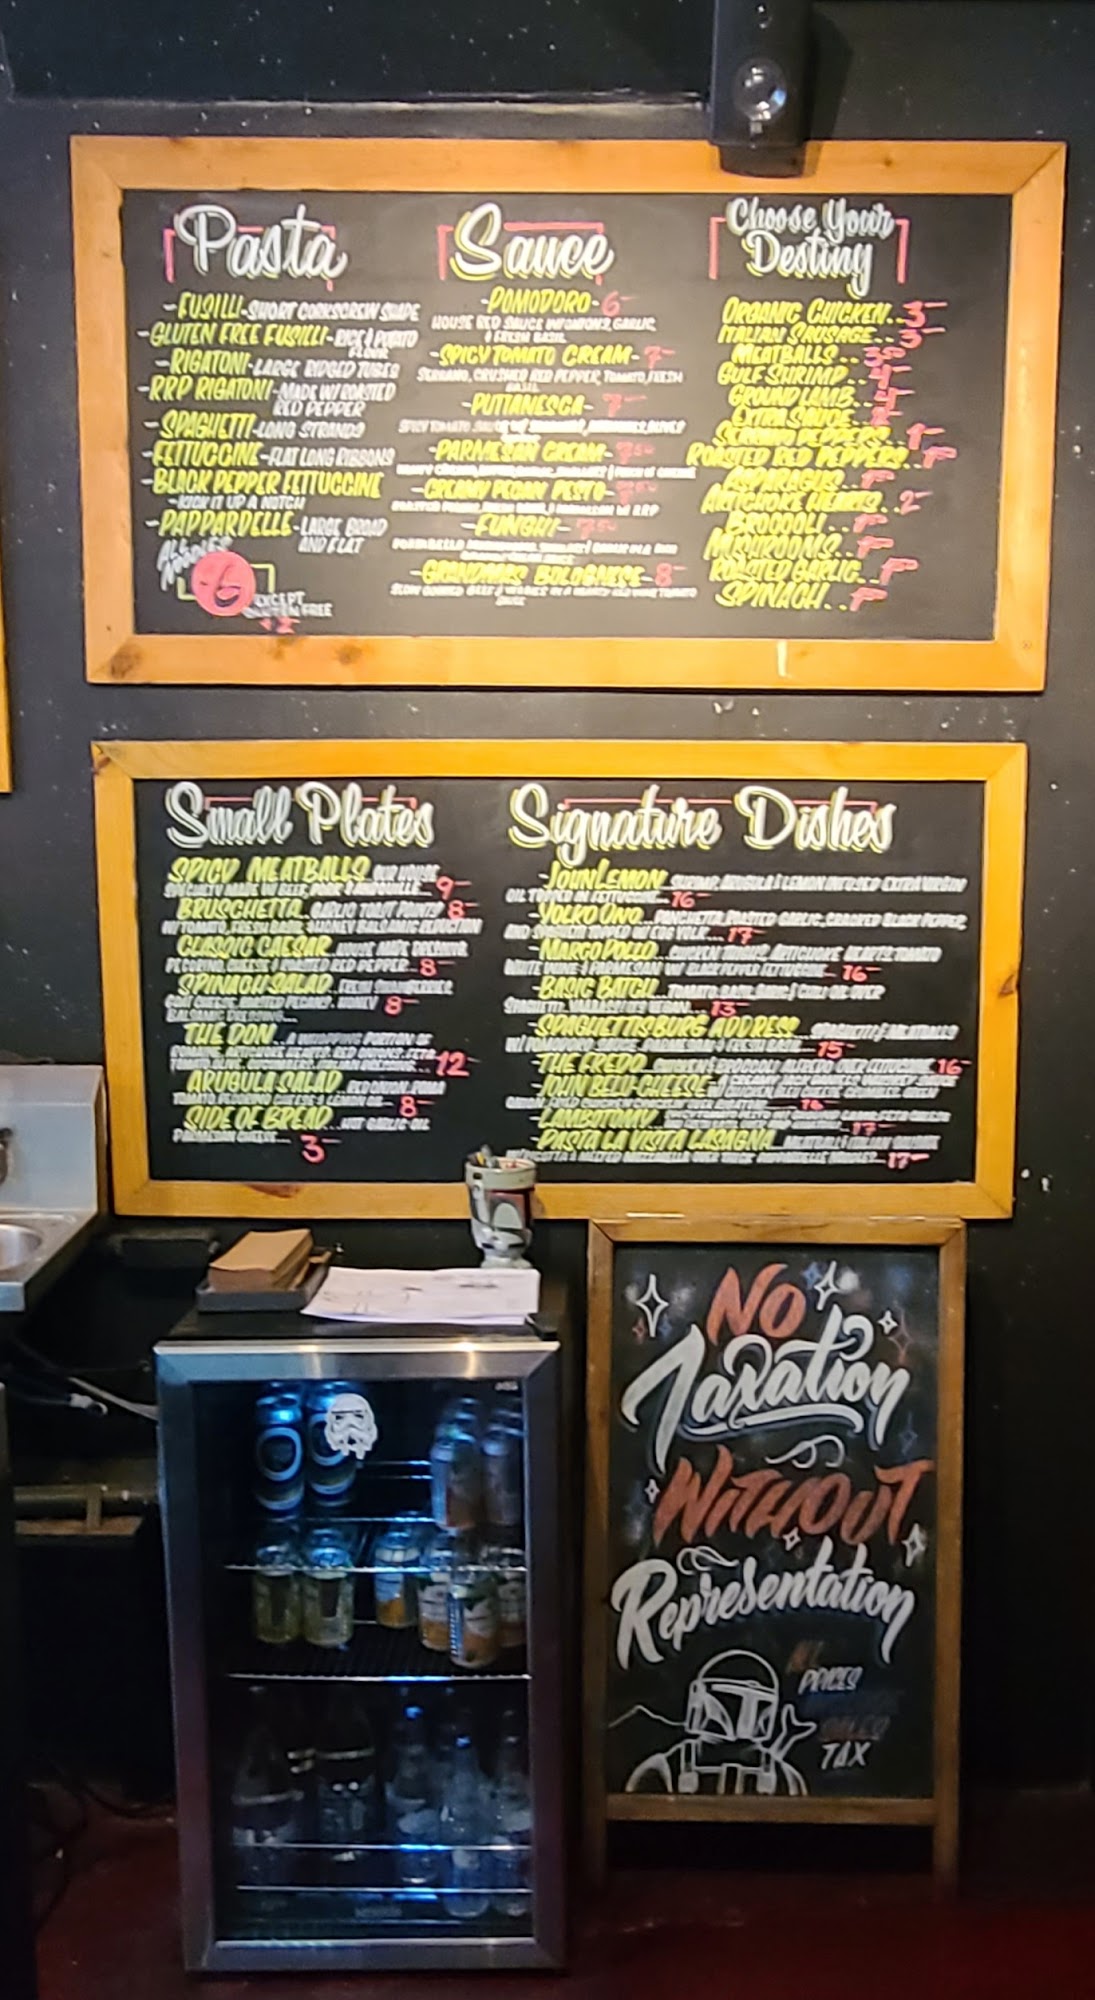 Pasta
-FUSILLI-SHORT CORKSCREW SHAPE
-GLUTEN FREE FUSILLI-RICE & POTATO
FLOUR
-RIGATONI-LARGE RIDGED TUBES
-RRP RIGATONI-MADE W/ ROASTED
RED PEPPER
-SPAGHETTI-LONG STRANDS
-FETTUCCINE-FLAT LONG RIBBONS
-BLACK PEPPER FETTUCCINE
-KICK IT UP A NOTCH
-PAPPARDELLE-LARGE BROAD
AND FLAT
ALL NOODLES
6
EXCEPT
GLUTEN FREE
Sauce
-POMODORO-6
HOUSE RED SAUCE W/ ONIONS, GARLIC,
& FRESH BASIL
-SPICY TOMATO CREAM-7
SERRANO, CRUSHED RED PEPPER, TOMATO, FRESH
BASIL
-PUTTANESCA-7
SPICY TOMATO SAUCE W/ OLIVES
-PARMESAN CREAM-750
-CREAMY PECAN PESTO-
-FUNGHI-750
-GRANDMA'S BOLOGNESE-8
SLOW COOKED BEEF & VEGGIES IN A HEARTY RED WINE TOMATO
SAUCE
Choose Your
Destiny
ORGANIC CHICKEN..3
ITALIAN SAUSAGE..3
MEATBALLS..350
GULF SHRIMP..4
GROUND LAMB..4
EXTRA SAUCE..2
SERRANO PEPPERS..1
ROASTED RED PEPPERS..1
ASPARAGUS..1
ARTICHOKE HEARTS..2
BROCCOLI..1
MUSHROOMS..1
ROASTED GARLIC..1
SPINACH..1
Small Plates
SPICY MEATBALLS OUR HOUSE
SPECIALTY MADE W/ BEEF, PORK & ANDOUILLE..9
BRUSCHETTA..GARLIC TOAST POINTS 8
W/ TOMATO, FRESH BASIL & HONEY BALSAMIC REDUCTION
CLASSIC CAESAR..HOUSE MADE DRESSING,
PECORINO CHEESE & ROASTED RED PEPPER..8
SPINACH SALAD..FRESH STRAWBERRIES,
GOAT CHEESE, ROASTED PECANS, HONEY 8
BALSAMIC DRESSING...
THE DON...A WHOPPING PORTION OF
ROMAINE, ARTICHOKE HEARTS, RED ONIONS, FETA,
12
ARUGULA SALAD..RED ONION, ROMA
TOMATO PECORINO CHEESE & LEMON OIL..8
SIDE OF BREAD...HOT GARLIC OIL
PARMESAN CHEESE...
3
Signature Dishes
JOHN LEMON..SHRIMP, ARUGULA & LEMON INFUSED EXTRA VIRGIN
OIL TOPPED IN FETTUCCINE...16
YOLKO ONO..PANCHETTA, ROASTED GARLIC, CRACKED BLACK PEPPER,
AND SPAGHETTI TOPPED W/ EGG YOLK..17
MARGO POLLO..CHICKEN BREAST, ARTICHOKE HEARTS TOMATO
WHITE WINE & PARMESAN W/ BLACK PEPPER FETTUCCINE..16
BASIC BATCH..TOMATO, BASIL, GARLIC & CHILI OIL OVER
SPAGHETTI..13
SPAGHETTISBURG ADDRESS..SPAGHETTI & MEATBALLS
W/ POMODORO SAUCE, PARMESAN & FRESH BASIL..15
THE FREDO..CHICKEN & BROCCOLI ALFREDO OVER FETTUCCINE..16
JOHN BELU-CHEESE
16
LAMBOTOMY
17
PASTA LA VISTA LASAGNA..MEATBALL & ITALIAN SAUSAGE
RICOTTA & MELTED MOZZARELLA OVER PAPPARDELLE NOODLES...17
No
Taxation
Without
Representation
ALL
PRICES
SALES
TAX